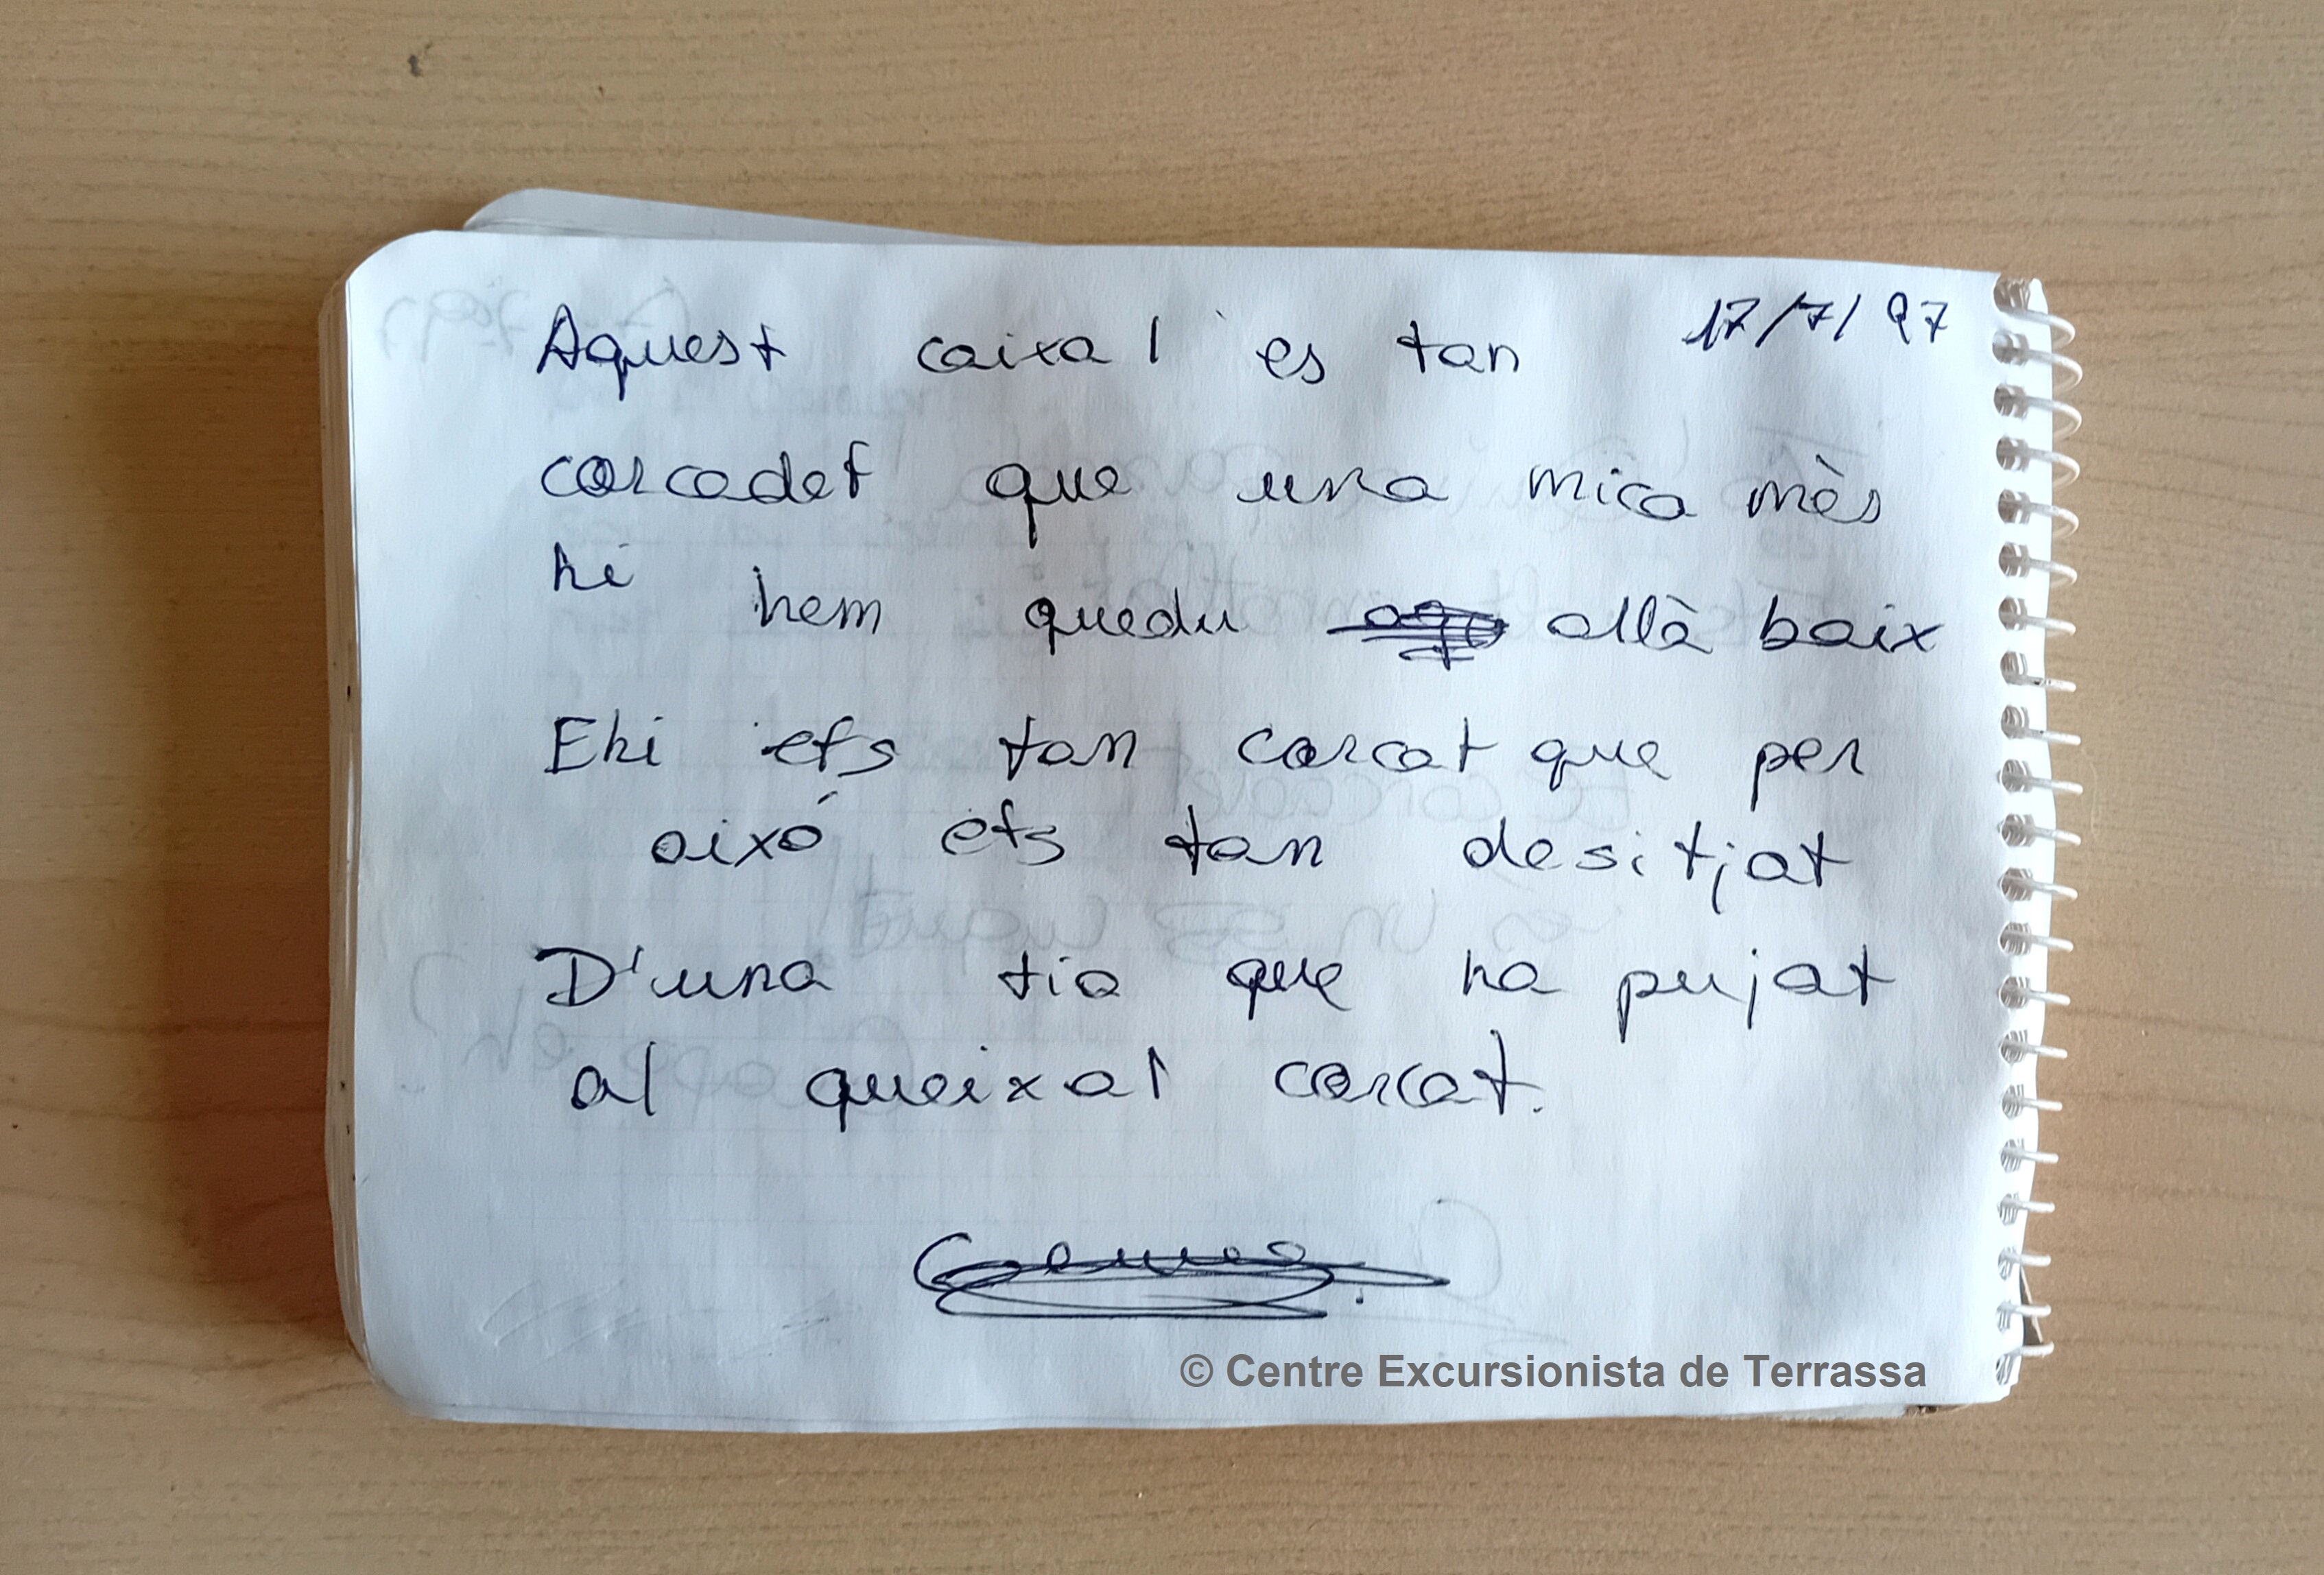 17/7/97
Aquest caixal es tan
corcadet que una mica mès
hi hem quedu allà baix
Ehi ets tan corcat que per
aixó ets tan desitjat
D'una tia que ha pujat
al queixal corcat.
© Centre Excursionista de Terrassa